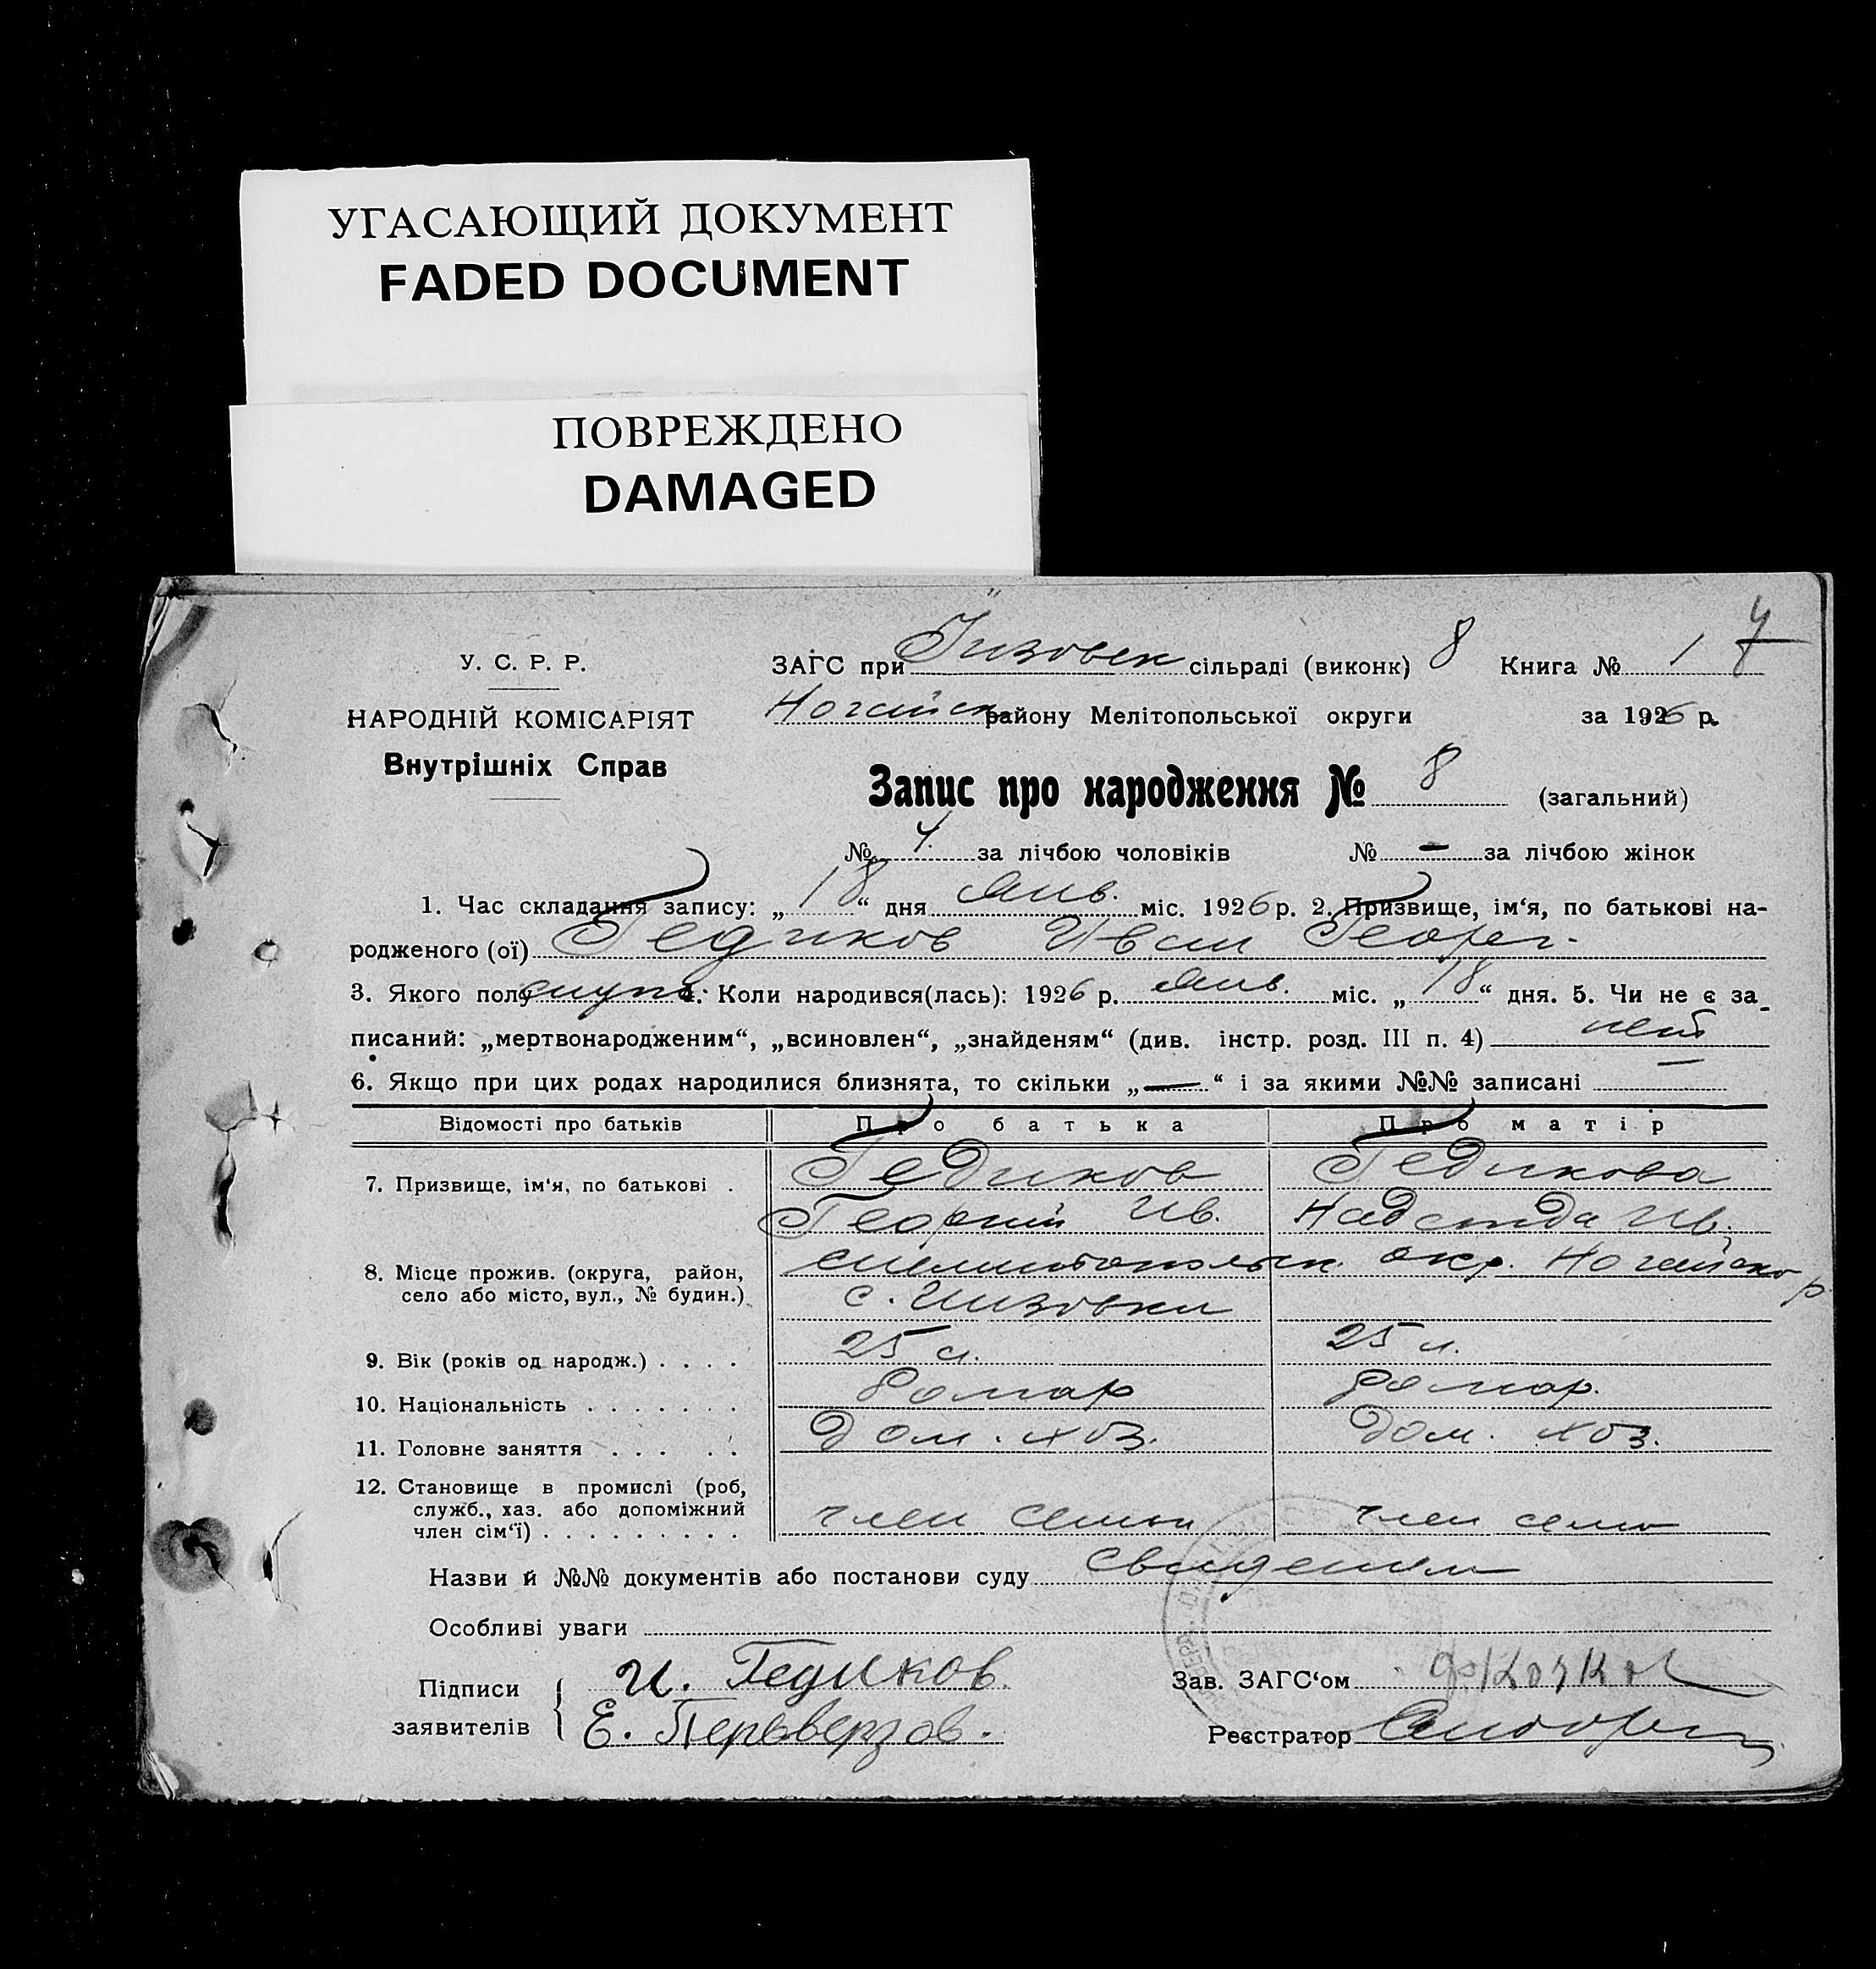 УГАСАЮЩИЙ ДОКУМЕНТ
FADED DOCUMENT
ПОВРЕЖДЕНО
DAMAGED
У. С. Р. Р.
НАРОДНІЙ КОМІСАРІЯТ
Внутрішніх Справ
ЗАГС при сільраді (виконк) 8 Книга № 1
Ногайск району Мелітопольської округи за 1926 р.
Запис про народження № 8 (загальний)
№ 4. за лічбою чоловіків № — за лічбою жінок
1. Час складання запису: „18“ дня Янв. міс. 1926 р. 2. Призвище, ім‘я, по батькові на-
родженого (ої) Гедиков Иван Георг.
3. Якого полу муж. 4. Коли народився(лась): 1926 р. Янв. міс. „18“ дня. 5. Чи не є за-
писаний: „мертвонародженим“, „всиновлен“, „знайденям“ (див. інстр. розд. III п. 4) нет
6. Якщо при цих родах народилися близнята, то скільки „—“ і за якими №№ записані —
Відомості про батьків Про батька Про матір
7. Призвище, ім‘я, по батькові . Гедиков Гедикова
Георгий Ив. Надежда Ив.
8. Місце прожив. (округа, район, село або місто, вул., № будин.) Мелитопольск. окр. Ногайско р.
9. Вік (років од народж.) . . . . 25 л. 25 л.
10. Національність . . . . . . .
11. Головне заняття . . . . . Дом. хоз. Дом. хоз.
12. Становище в промислі (роб, служб., хаз. або допоміжний член сім‘ї) . . . . . . . . . член семьи член семьи
Назви й №№ документів або постанови суду
Особливі уваги
Підписи заявителів { И. Гедиков.
Е. Перьверзов.
Зав. ЗАГС‘ом
Реєстратор